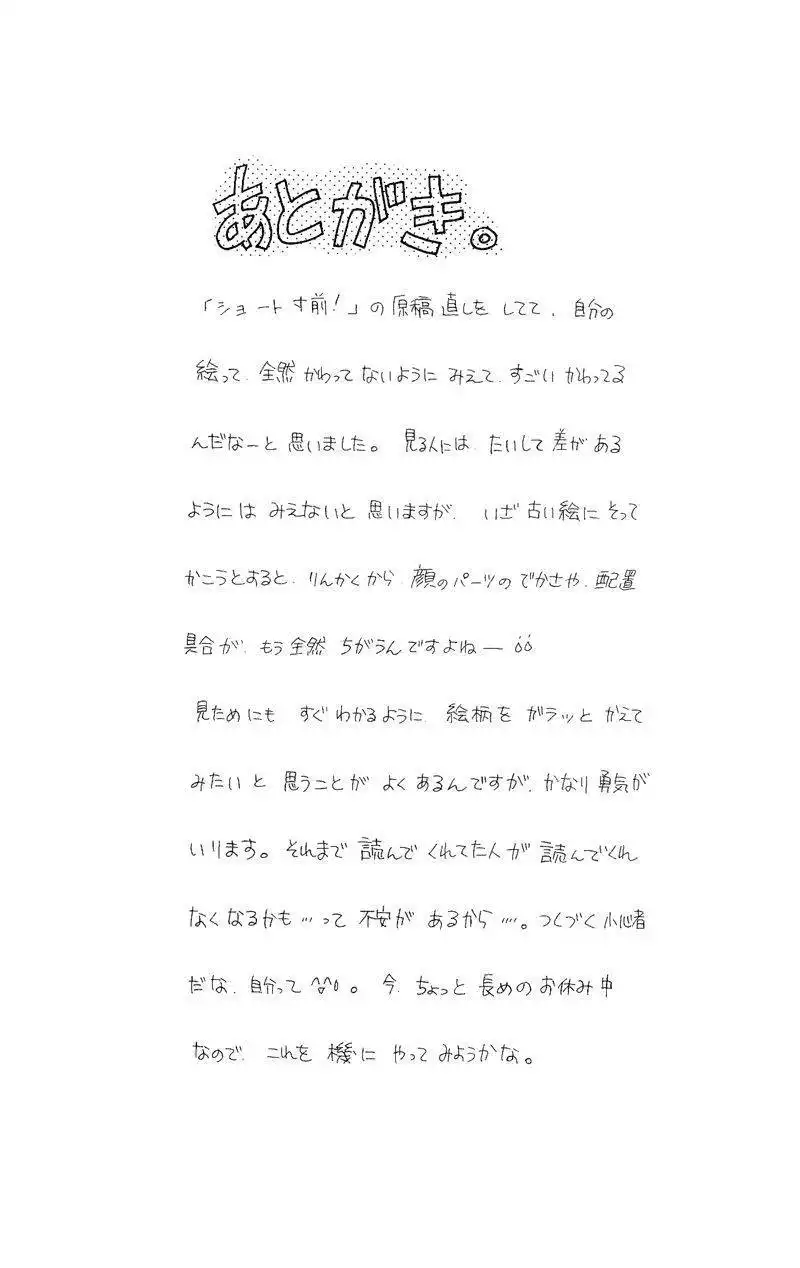 あとがき。
「ショートす前！」の原稿直しをしてて、自分の
絵って、全然かわってないようにみえて、すごいかわってる
んだなーと思いました。見る人には、たいして差がある
ようにはみえないと思いますが、いざ古い絵にそって
かこうとすると、りんかくから、顔のパーツのでかさや、配置
具合が、もう全然ちがうんですよねー
見ためにもすぐわかるように、絵柄をガラッとかえて
みたいと思うことがよくあるんですが、かなり勇気が
いります。それまで読んでくれてた人が読んでくれ
なくなるかも…って不安があるから…。つくづく小心者
だな、自分って^^。今、ちょっと長めのお休み中
なので、これを機にやってみようかな。